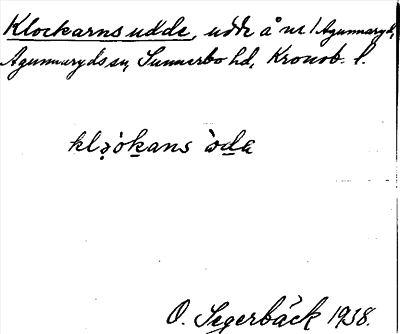 Klockarns udde, udde å nr 1 Agunnaryd,
Agunnaryds sn, Sunnerbo hd, Kronob. l.
O. Segerbäck 1938.